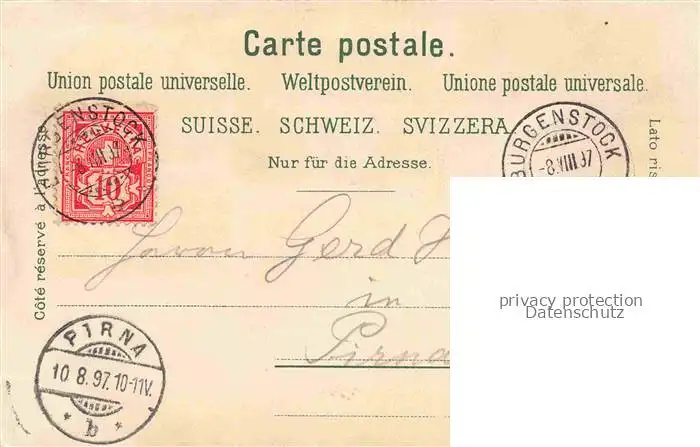 Carte postale.
Union postale universelle. Weltpostverein. Unione postale universale.
SUISSE. SCHWEIZ. SVIZZERA.
Nur für die Adresse.
Côté réservé à l'adresse
Lato ris
BÜRGENSTOCK
-8.VIII.97
HELVETIA
10
Gerd
in
Pirna
PIRNA
10 8. 97. 10-11V.
* b *
privacy protection
Datenschutz